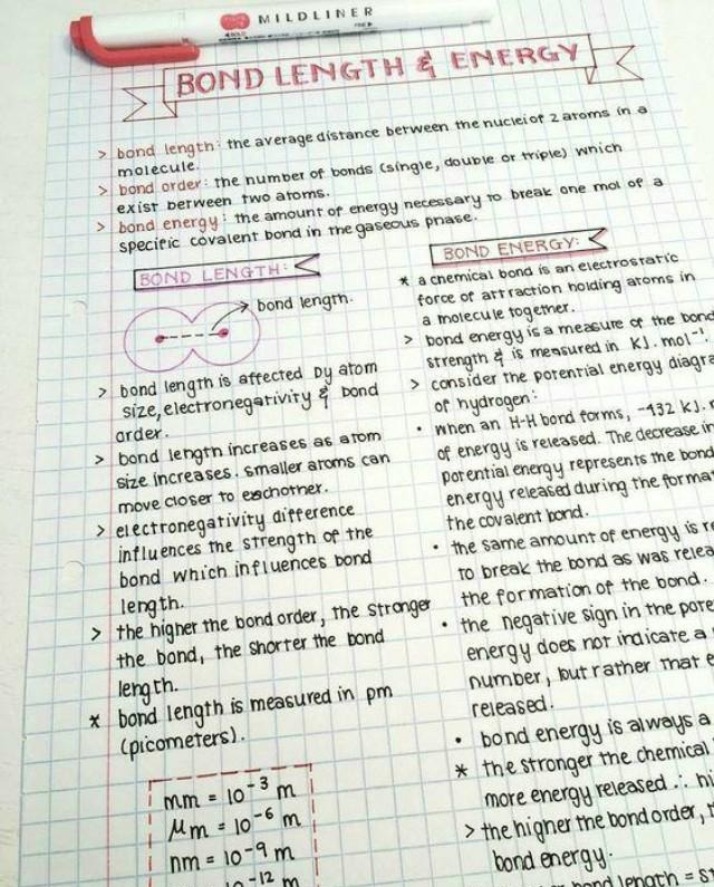 MILDLINER
BOND LENGTH & ENERGY
> bond length: the average distance between the nuclei of 2 atoms in a
molecule.
> bond order: the number of bonds (single, double or triple) which
exist between two atoms.
> bond energy: the amount of energy necessary to break one mol of a
specific covalent bond in the gaseous phase.
BOND LENGTH:
bond length.
> bond length is affected by atom
size, electronegativity & bond
order.
> bond length increases as atom
size increases. smaller atoms can
move closer to eachother.
> electronegativity difference
influences the strength of the
bond which influences bond
length.
> the higher the bond order, the stronger
the bond, the shorter the bond
length.
* bond length is measured in pm
(picometers).
mm = 10⁻³ m
μm = 10⁻⁶ m
nm = 10⁻⁹ m
10⁻¹² m
BOND ENERGY:
* a chemical bond is an electrostatic
force of attraction holding atoms in
a molecule together.
> bond energy is a measure of the bond
strength & is measured in KJ. mol⁻¹.
> consider the potential energy diagra
of hydrogen:
• when an H-H bond forms, -432 KJ.
of energy is released. The decrease in
potential energy represents the bond
energy released during the forma
the covalent bond.
• the same amount of energy is r
to break the bond as was relea
the formation of the bond.
• the negative sign in the pote
energy does not indicate a
number, but rather that e
released.
• bond energy is always a
* the stronger the chemical
more energy released ∴ hi
> the higher the bond order, t
bond energy.
bond length = st